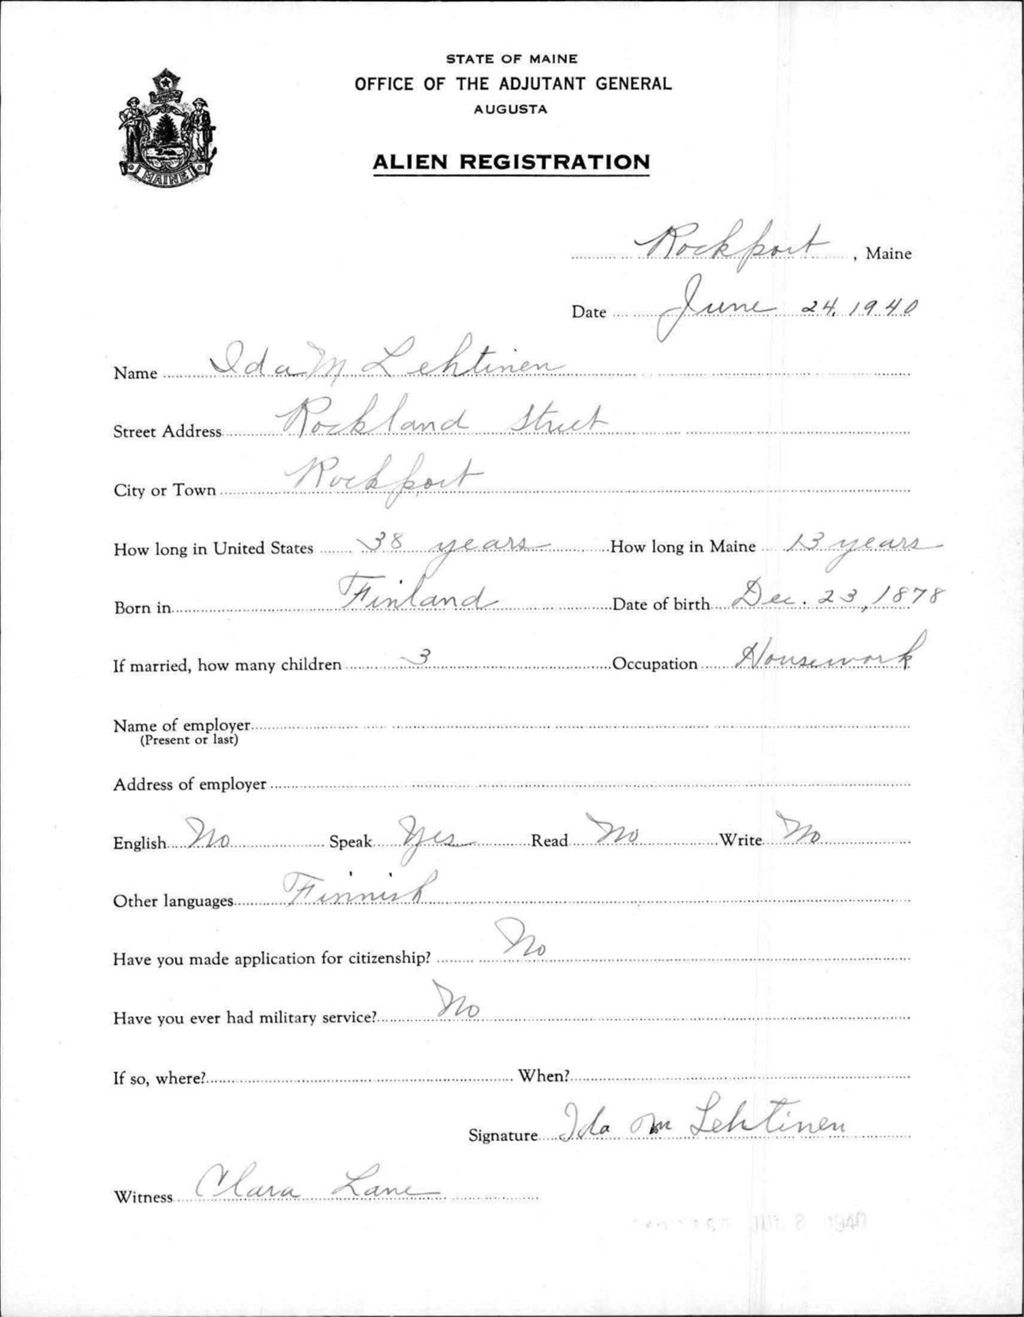 STATE OF MAINE
OFFICE OF THE ADJUTANT GENERAL
AUGUSTA
ALIEN REGISTRATION
MAINE
Rockport, Maine
Date June 24, 1940
Name Ida M Lehtinen
Street Address Rockland Street
City or Town Rockport
How long in United States 38 years How long in Maine 13 years
Born in Finland Date of birth Dec. 23, 1878
If married, how many children 3 Occupation Housework
Name of employer
(Present or last)
Address of employer
English No Speak Yes Read No Write No
Other languages Finnish
Have you made application for citizenship? No
Have you ever had military service? No
If so, where? When?
Signature Ida M Lehtinen
Witness Clara Lane
1940